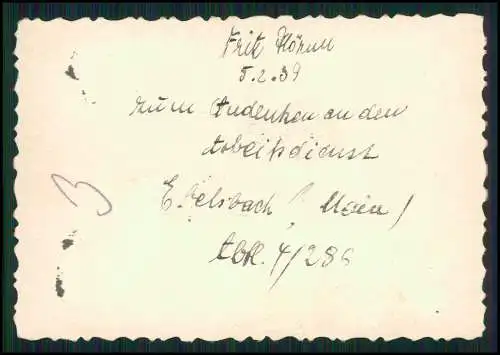 Fritz
5.2.39
zum Andenken an den
Arbeitsdienst
Ebelsbach (Main)
Abtl. 4/286
3